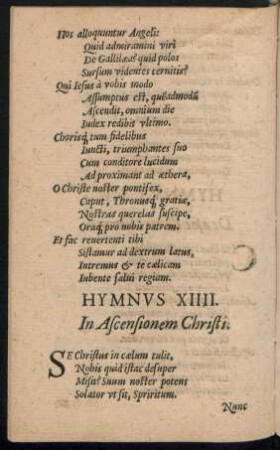 Nos alloquuntur Angeli:
Quid admiramini viri
De Gallilæa? quid polos
Sursum videntes cernitis?
Qui Iesus à vobis modo
Assumptus est, quẽadmodũ
Ascendit, omnium die
Iudex redibit vltimo.
Chorisq́; tum fidelibus
Iuncti, triumphantes suo
Cum conditore lucidum
Ad proximant ad æthera,
O Christe noster pontifex,
Caput, Thronusq́; gratiæ,
Nostras querelas suscipe,
Oraq́; pro nobis patrem.
Et fac reuertenti tibi
Sistamur ad dextrum latus,
Intremus & te cælicam
Iubente salui regiam.
HYMNVS XIIII.
In Ascensionem Christi.
SE Christus in cælum tulit,
Nobis quid istac desuper
Misit? Suum noster potens
Solator vt sit, Spriritum.
Nunc